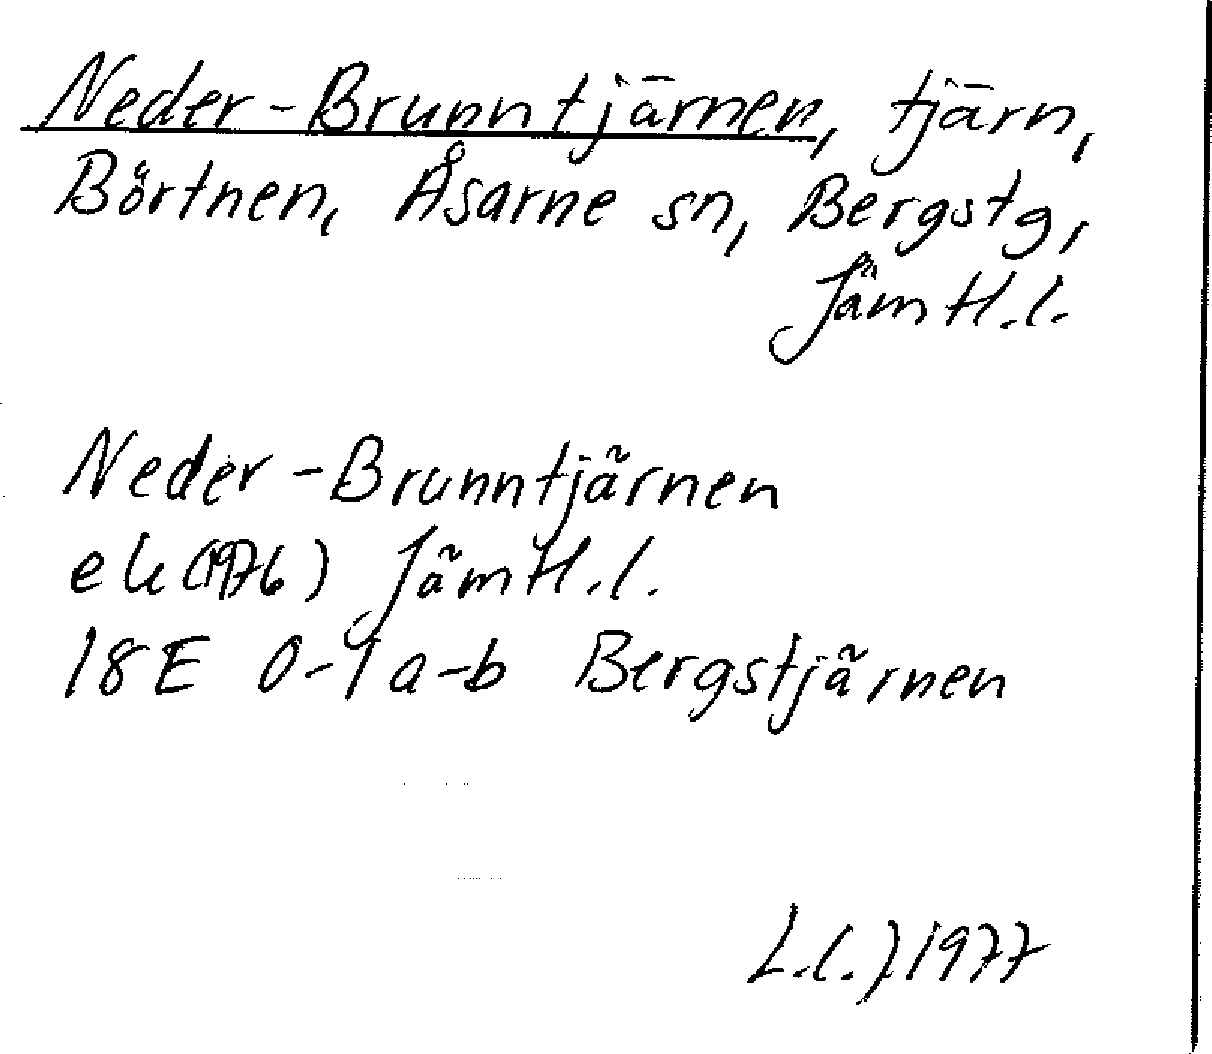 Neder-Brunntjärnen, tjärn,
Börtnen, Åsarne sn, Bergstg,
Jämtl.l.
Neder-Brunntjärnen
ek (1976) Jämtl.l.
18E 0-1 a-b Bergstjärnen
1977